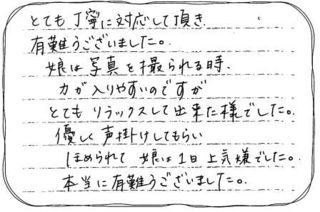 とても丁寧に対応して頂き
有難うございました。
娘は写真を撮られる時、
力が入りやすいのですが
とてもリラックスして出来た様でした。
優しく声掛けしてもらい
ほめられて娘は1日上気嫌でした。
本当に有難うございました。